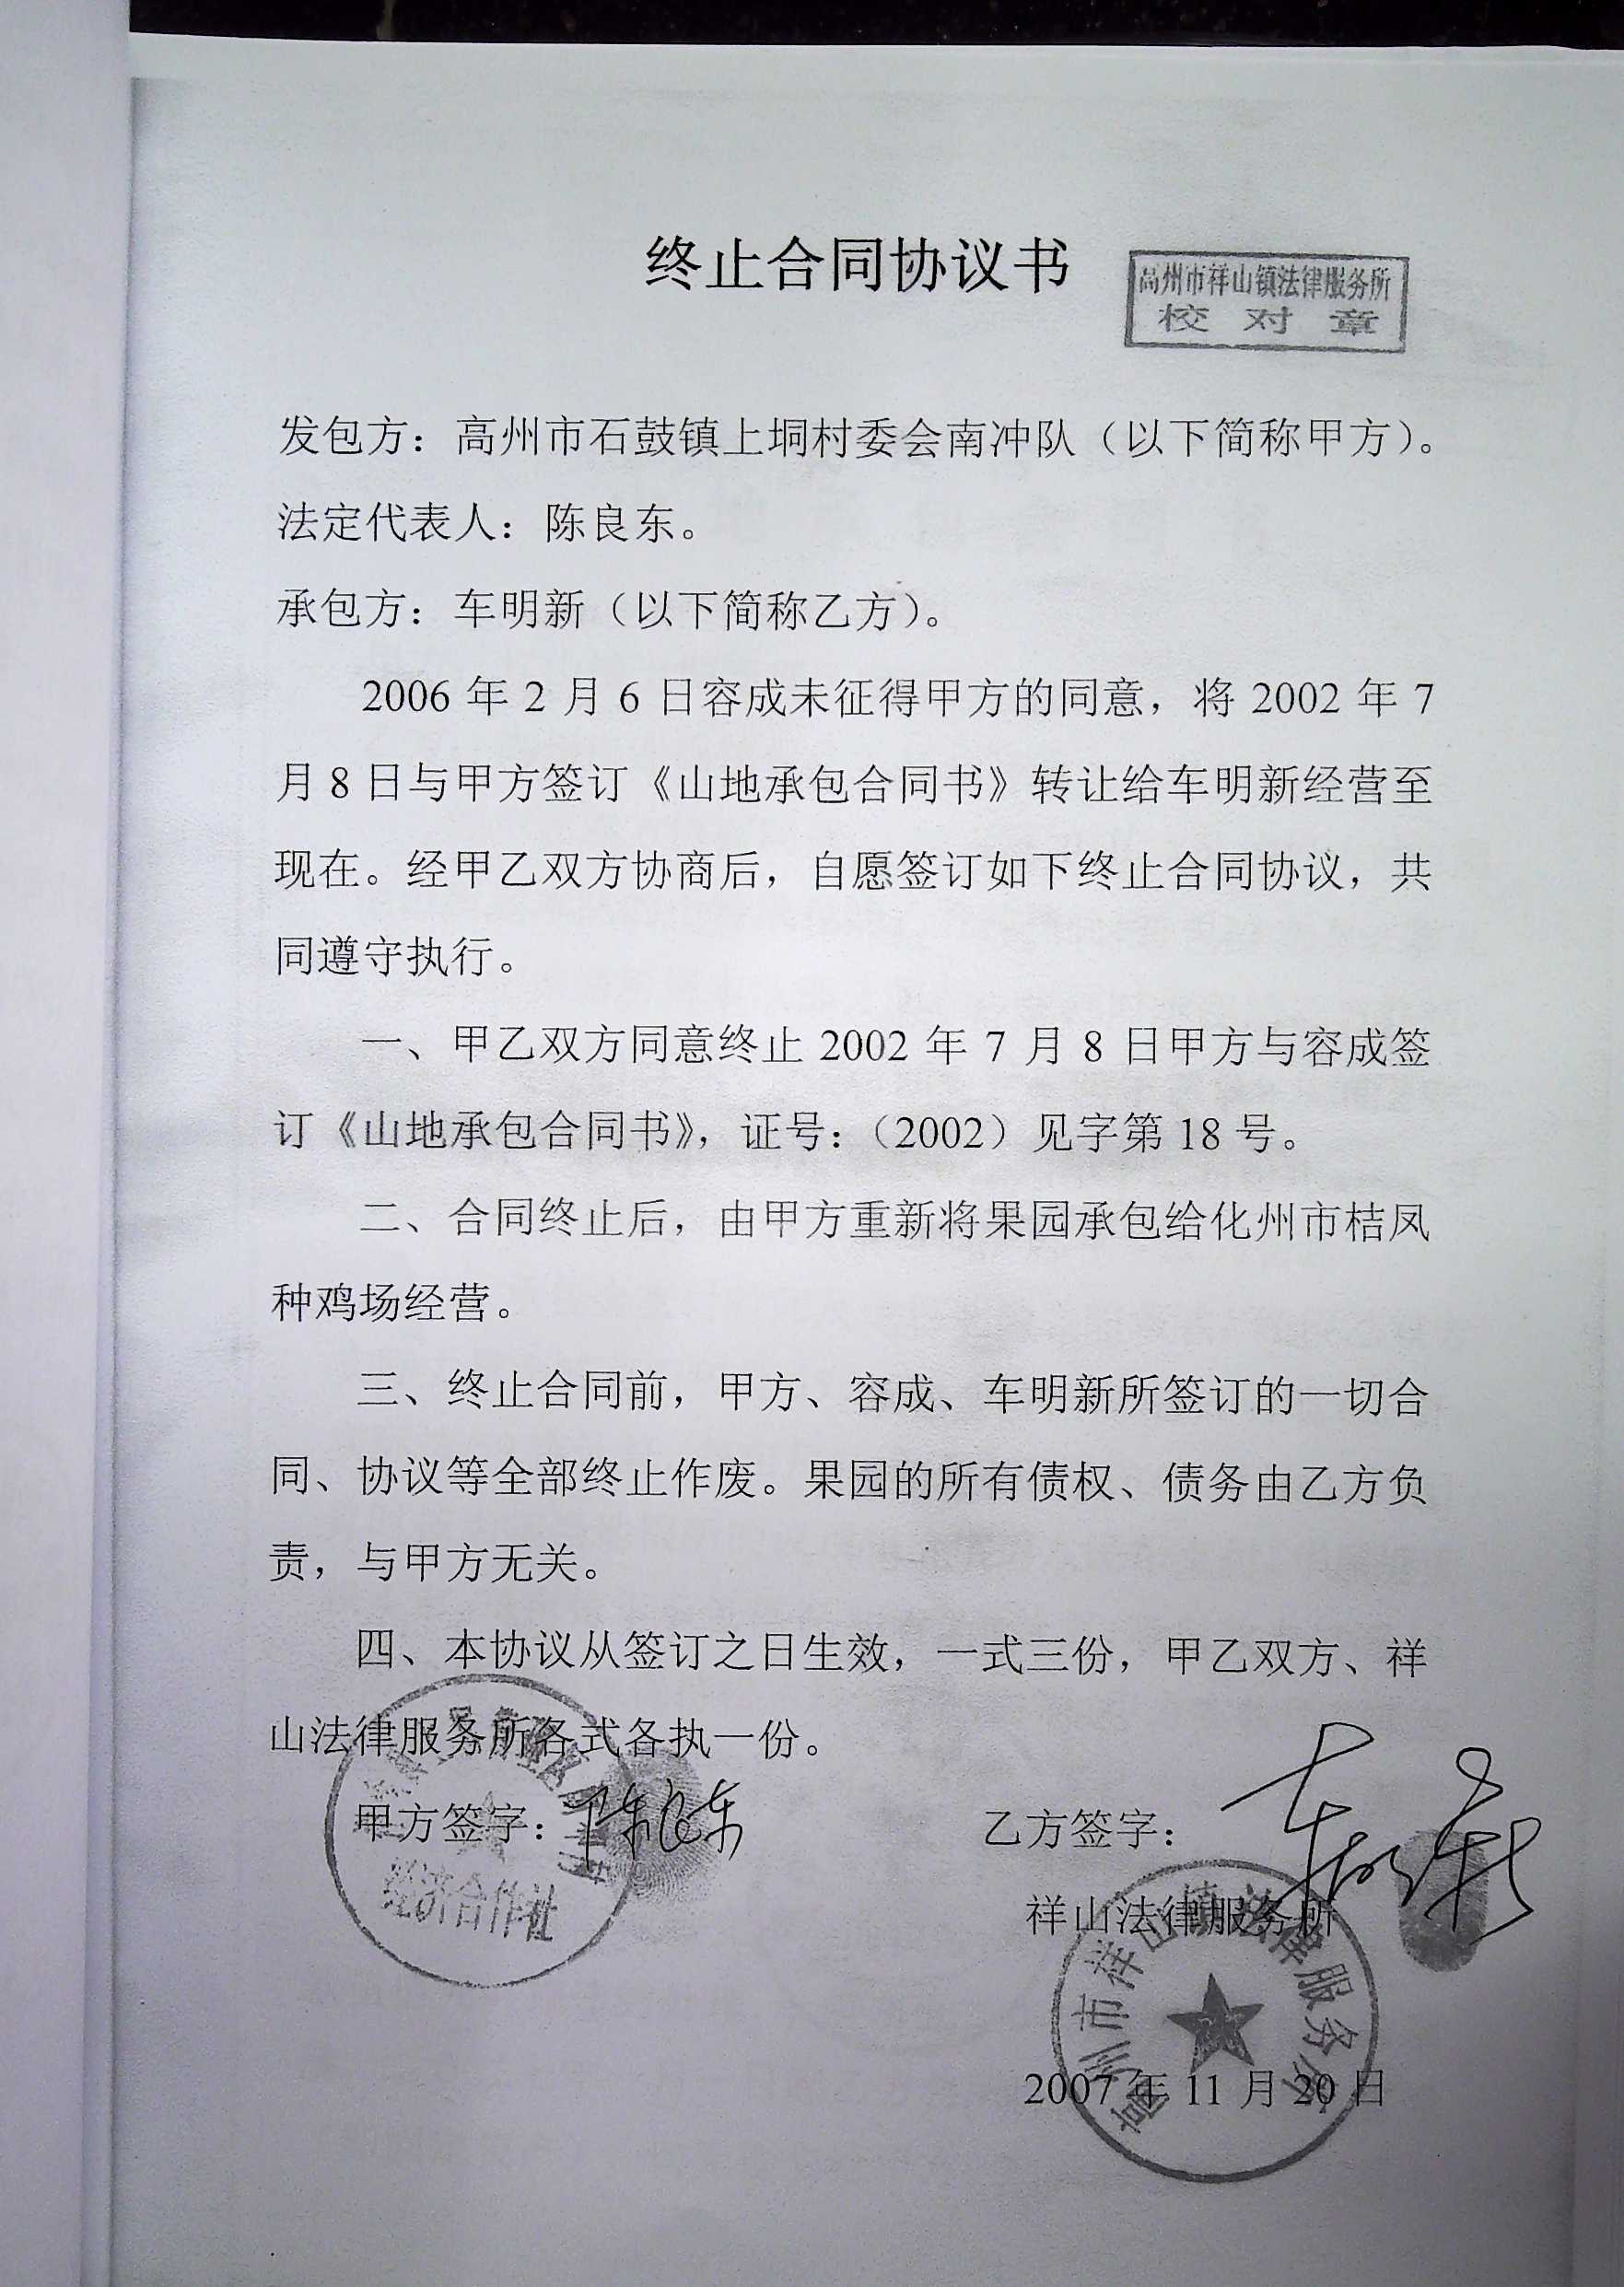 终止合同协议书
高州市祥山镇法律服务所
校对章
发包方：高州市石鼓镇上垌村委会南冲队（以下简称甲方）。
法定代表人：陈良东。
承包方：车明新（以下简称乙方）。
2006年2月6日容成未征得甲方的同意，将2002年7
月8日与甲方签订《山地承包合同书》转让给车明新经营至
现在。经甲乙双方协商后，自愿签订如下终止合同协议，共
同遵守执行。
一、甲乙双方同意终止2002年7月8日甲方与容成签
订《山地承包合同书》，证号：（2002）见字第18号。
二、合同终止后，由甲方重新将果园承包给化州市桔凤
种鸡场经营。
三、终止合同前，甲方、容成、车明新所签订的一切合
同、协议等全部终止作废。果园的所有债权、债务由乙方负
责，与甲方无关。
四、本协议从签订之日生效，一式三份，甲乙双方、祥
山法律服务所各式各执一份。
甲方签字：陈良东
乙方签字：车明新
经济合作社
祥山法律服务所
高州市祥山镇法律服务所
2007年11月20日